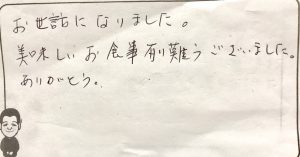 お世話になりました。
美味しいお食事有難うございました。
ありがとう。